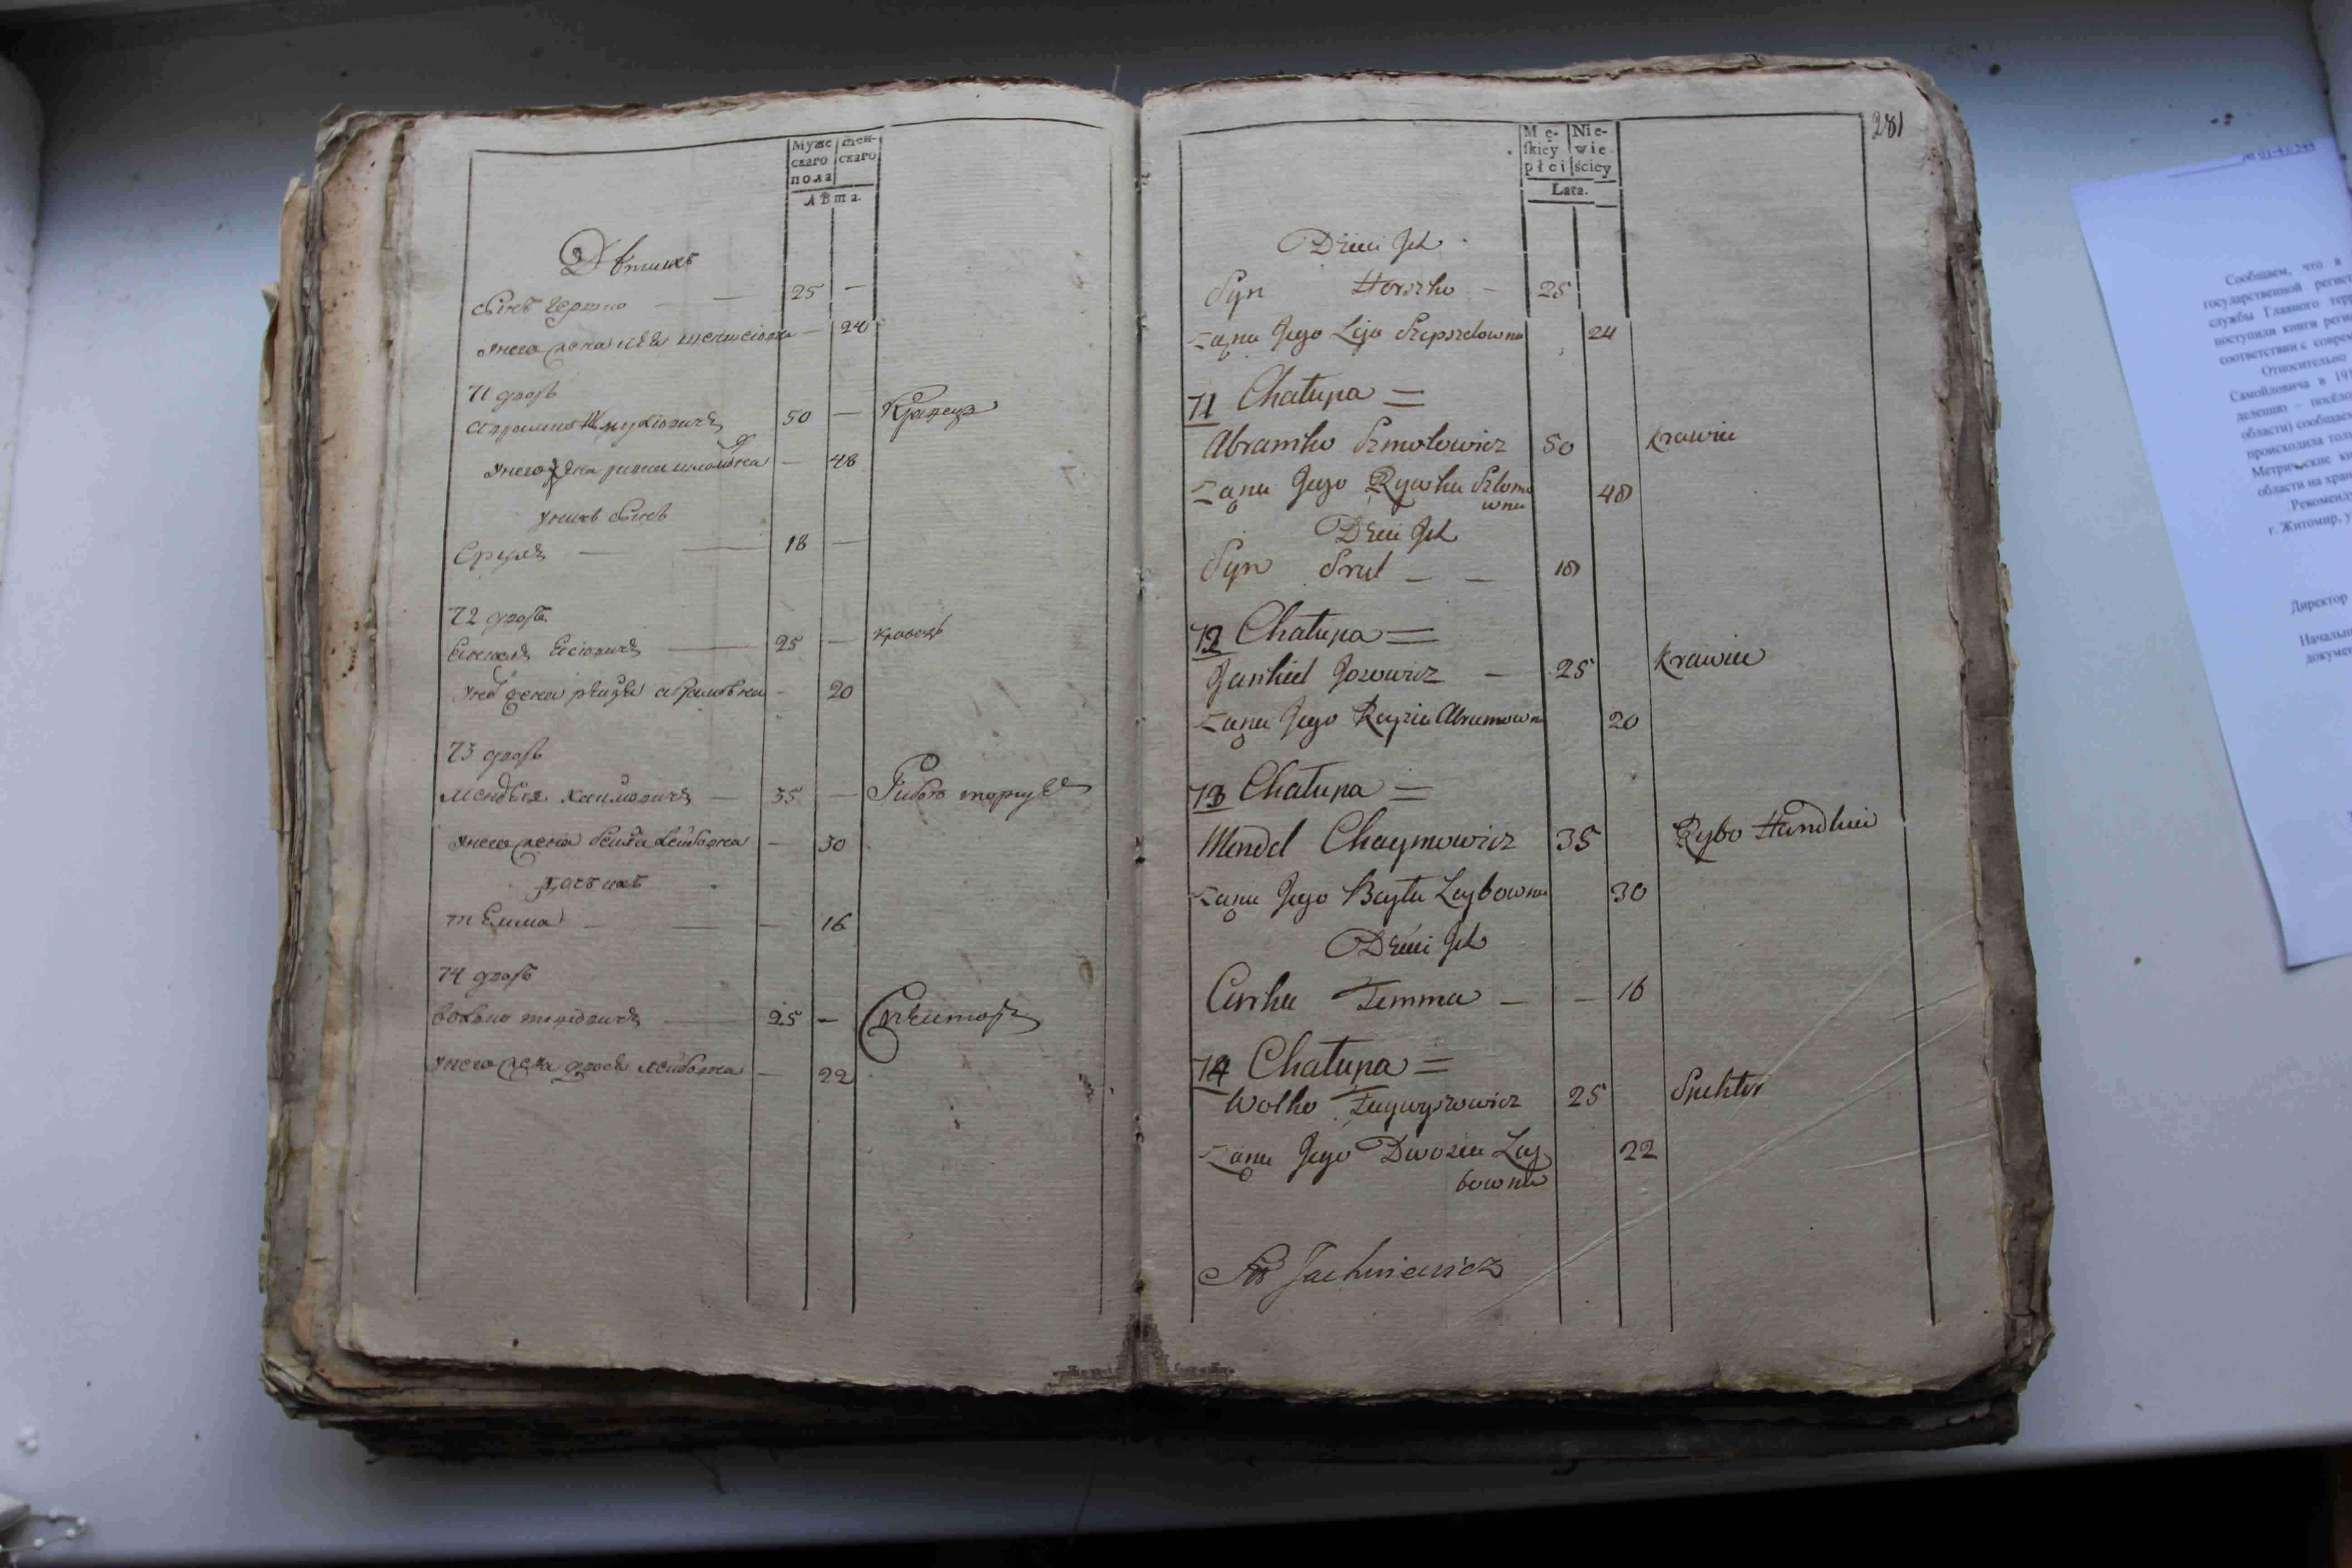 Муже
скаго
пола
жен-
скаго
Лѣта.
Дѣтихъ
Синъ Гершко — — 25 —
Унего жена — 24
71 дворъ
50 — Кравецъ
Унего жена — 48
Унихъ Синъ
Сруль — — 18 —
72 дворъ
— 25 — кравецъ
Унего жена — 20
73 дворъ
Мендель Хаимовичъ — 35 — Рибою торгуе
Унего жена Бейла Лейбовна — 30
Дочь ихъ
темма — — — 16
74 дворъ
Волько — 25 — Спекторъ
Унего жена двося лейбовна — 22
281
Mę-
skiey
płci
Nie-
wie
ściey
Lata.
Dzieci Ich
Syn Herszko — 25
Zona Jego Leja Szepszelowna 24
71 Chałupa =
Abramko Szmolowicz 50 Krawiec
Zona Jego Rywka Szlomo
wna 48
Dzieci Ich
Syn Srul — — 18
72 Chałupa =
Jankiel Josiowicz — 25 Krawiec
Zona Jego Rayzia Abramowna 20
73 Chałupa =
Mendel Chaymowicz 35 Rybo Handluie
Zona Jego Bayla Leybowna 30
Dzieci Ich
Curka Temma — — 16
74 Chałupa =
Wolko 25 Spektor
Zona Jego Dwosia Ley
bowna 22
Jachniewicz
Сообщаем, что в
государственной регист
службы Главного тер
поступили книги реги
соответствии с соврем
Относительно
Самойловича в 191
делению – посёло
области) сообщае
происходила тол
Метрические кн
области на хран
Рекоменду
г. Житомир, у
Директор
Начальн
докумен